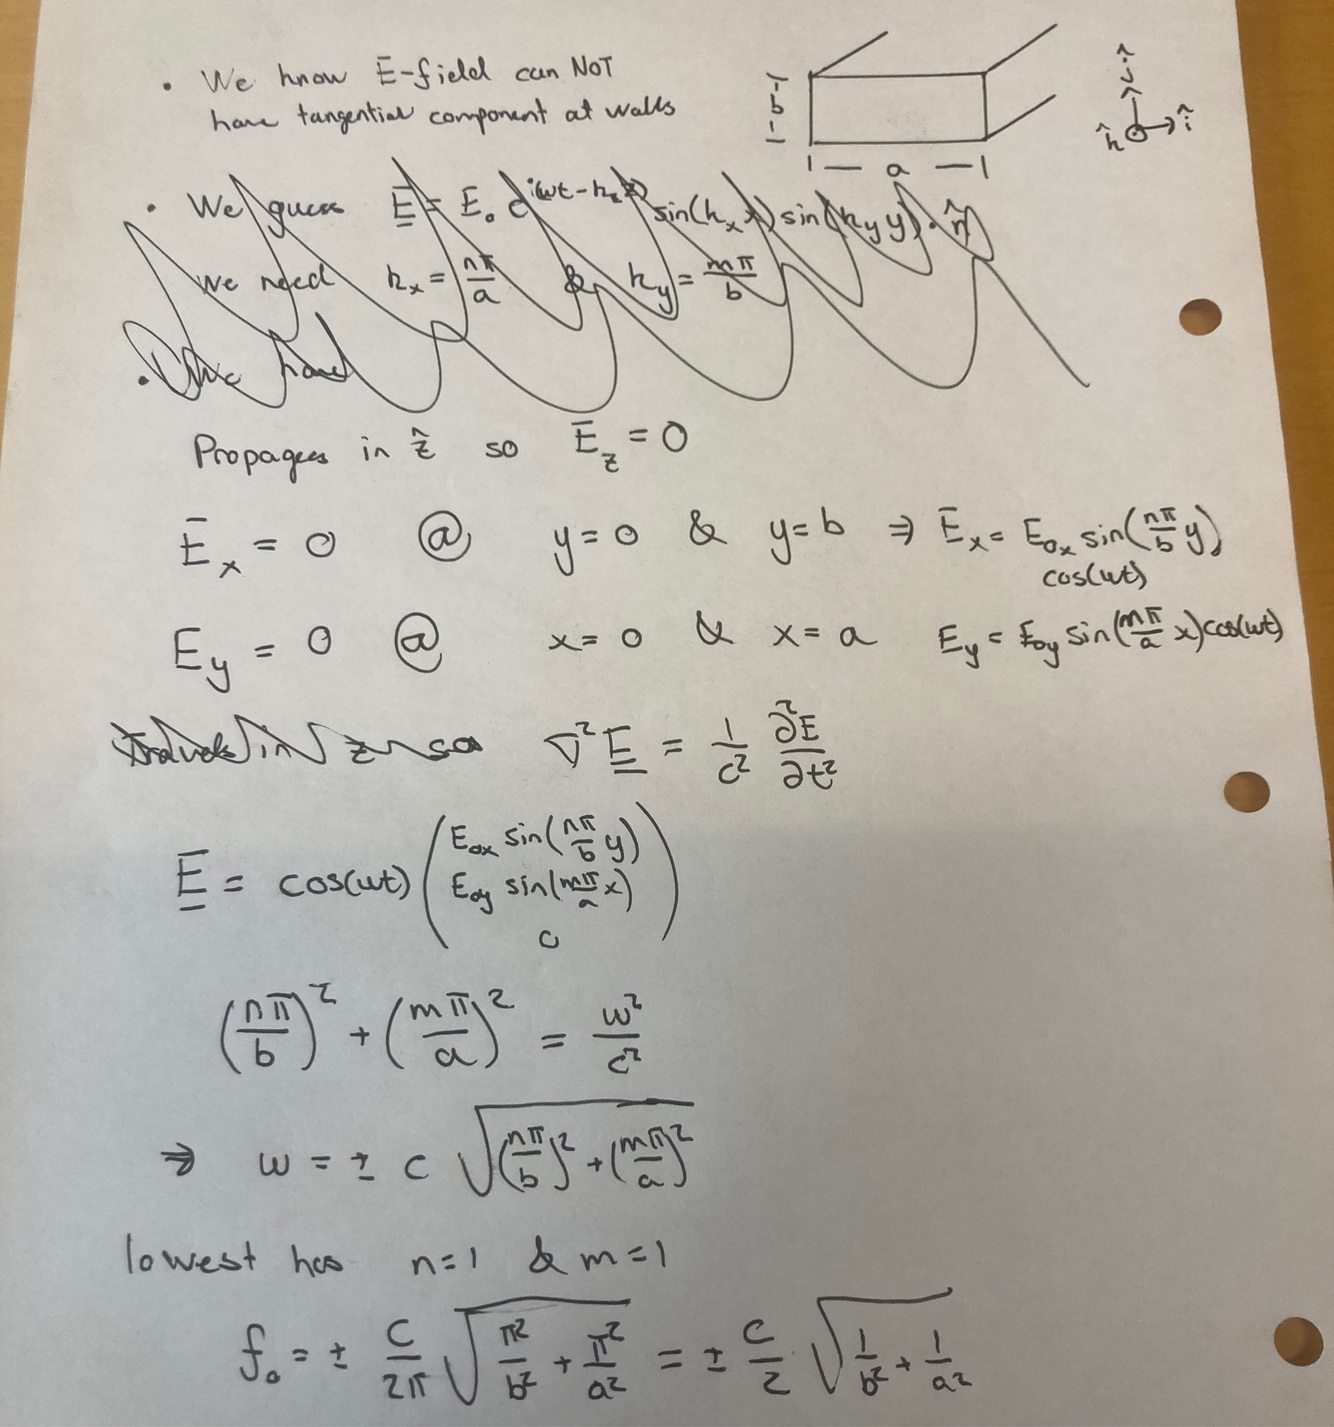 • We know E̅-field can NOT
have tangential component at walls
b
a
ĵ
k̂ î
• We guess E̲ = E₀ e^{i(ωt-k_z z)} sin(k_x x) sin(k_y y) · n̂
We need k_x = nπ/a & k_y = mπ/b
Propages in ẑ so E̅_z = 0
E̅_x = 0 @ y=0 & y=b ⇒ E̅_x = E_{ox} sin(nπ/b y)
cos(ωt)
E_y = 0 @ x=0 & x=a E_y = E_{oy} sin(mπ/a x) cos(ωt)
Travels in z so ∇²E̲ = 1/c² ∂²E/∂t²
E̲ = cos(ωt) (E_{ox} sin(nπ/b y)
E_{oy} sin(mπ/a x)
0)
(nπ/b)² + (mπ/a)² = ω²/c²
⇒ ω = ± c √((nπ/b)² + (mπ/a)²)
lowest has n=1 & m=1
f₀ = ± c/2π √(π²/b² + π²/a²) = ± c/2 √(1/b² + 1/a²)